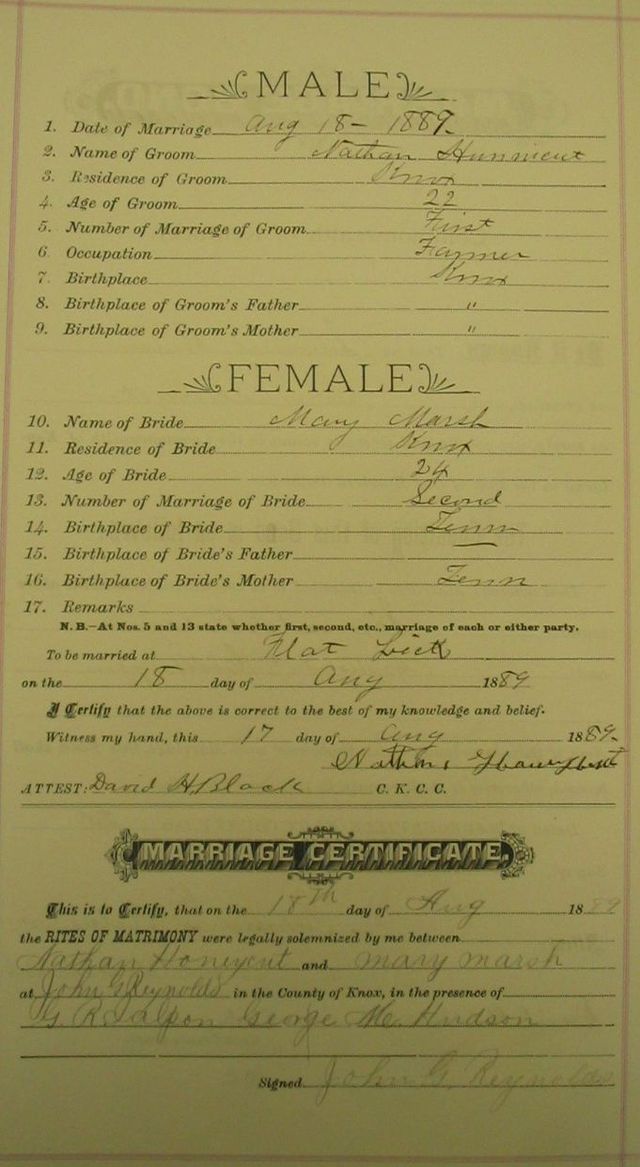 MALE
1. Date of Marriage Aug 18 - 1889-
2. Name of Groom Nathan Hunnicut
3. Residence of Groom Knox
4. Age of Groom 22
5. Number of Marriage of Groom First
6. Occupation Farmer
7. Birthplace Knox
8. Birthplace of Groom's Father "
9. Birthplace of Groom's Mother "
FEMALE
10. Name of Bride Mary Marsh
11. Residence of Bride Knox
12. Age of Bride 24
13. Number of Marriage of Bride Second
14. Birthplace of Bride Tenn
15. Birthplace of Bride's Father —
16. Birthplace of Bride's Mother Tenn
17. Remarks
N. B.—At Nos. 5 and 13 state whether first, second, etc., marriage of each or either party.
To be married at Flat Lick
on the 18 day of Aug 1889
I Certify that the above is correct to the best of my knowledge and belief.
Witness my hand, this 17 day of Aug 1889-
Nathan
ATTEST: David H. Black C. K. C. C.
MARRIAGE CERTIFICATE.
This is to Certify, that on the 18th day of Aug 1889
the RITES OF MATRIMONY were legally solemnized by me between
Nathan Honeycut and mary marsh
at John G Reynolds in the County of Knox, in the presence of
G. R. George Mc Hudson
Signed John G. Reynolds